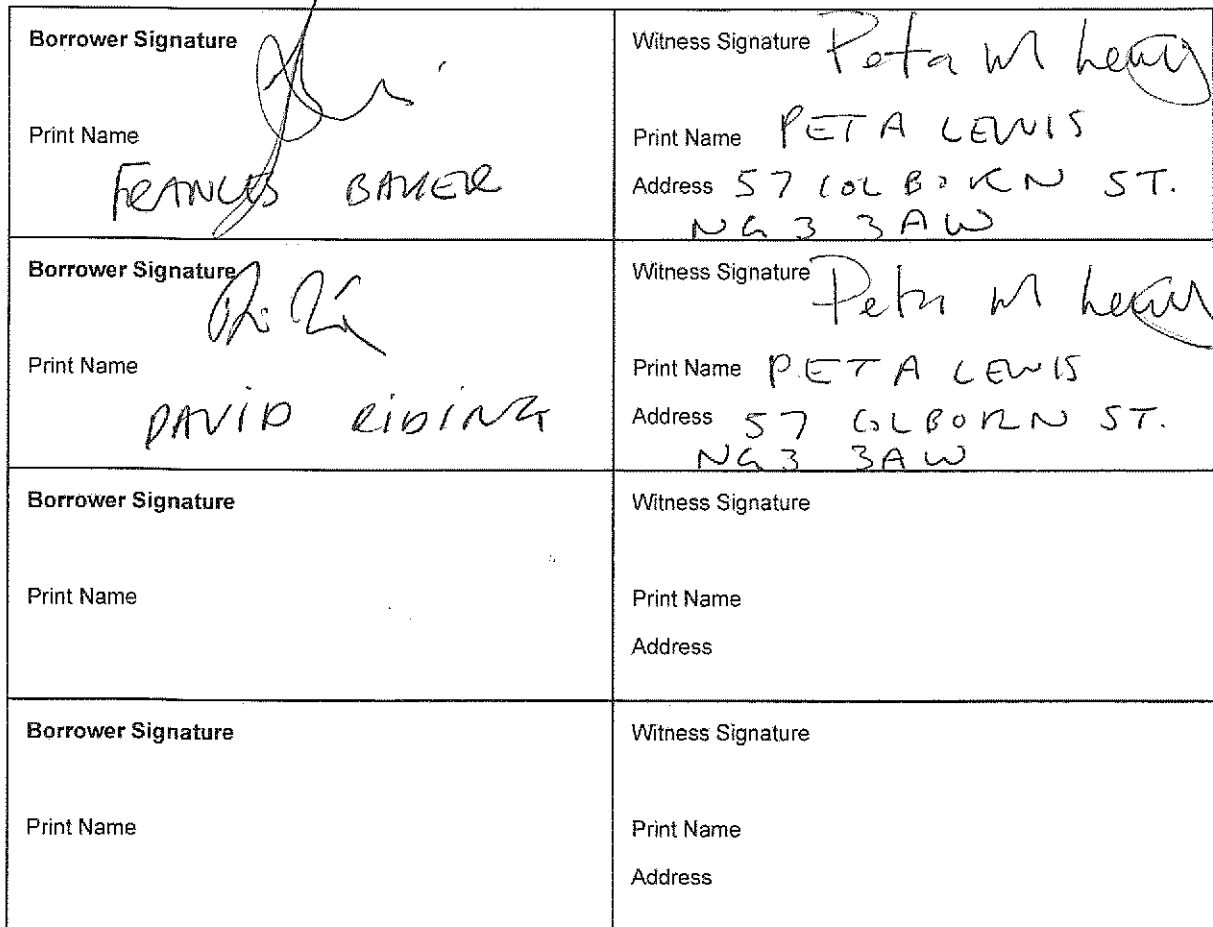 Borrower Signature
Print Name
FRANCES BAKER
Witness Signature Peta M Lewis
Print Name PETA LEWIS
Address 57 COLBORN ST.
NG3 3AW
Borrower Signature
Print Name
DAVID RIDING
Witness Signature Peta M Lewis
Print Name PETA LEWIS
Address 57 COLBORN ST.
NG3 3AW
Borrower Signature
Print Name
Witness Signature
Print Name
Address
Borrower Signature
Print Name
Witness Signature
Print Name
Address